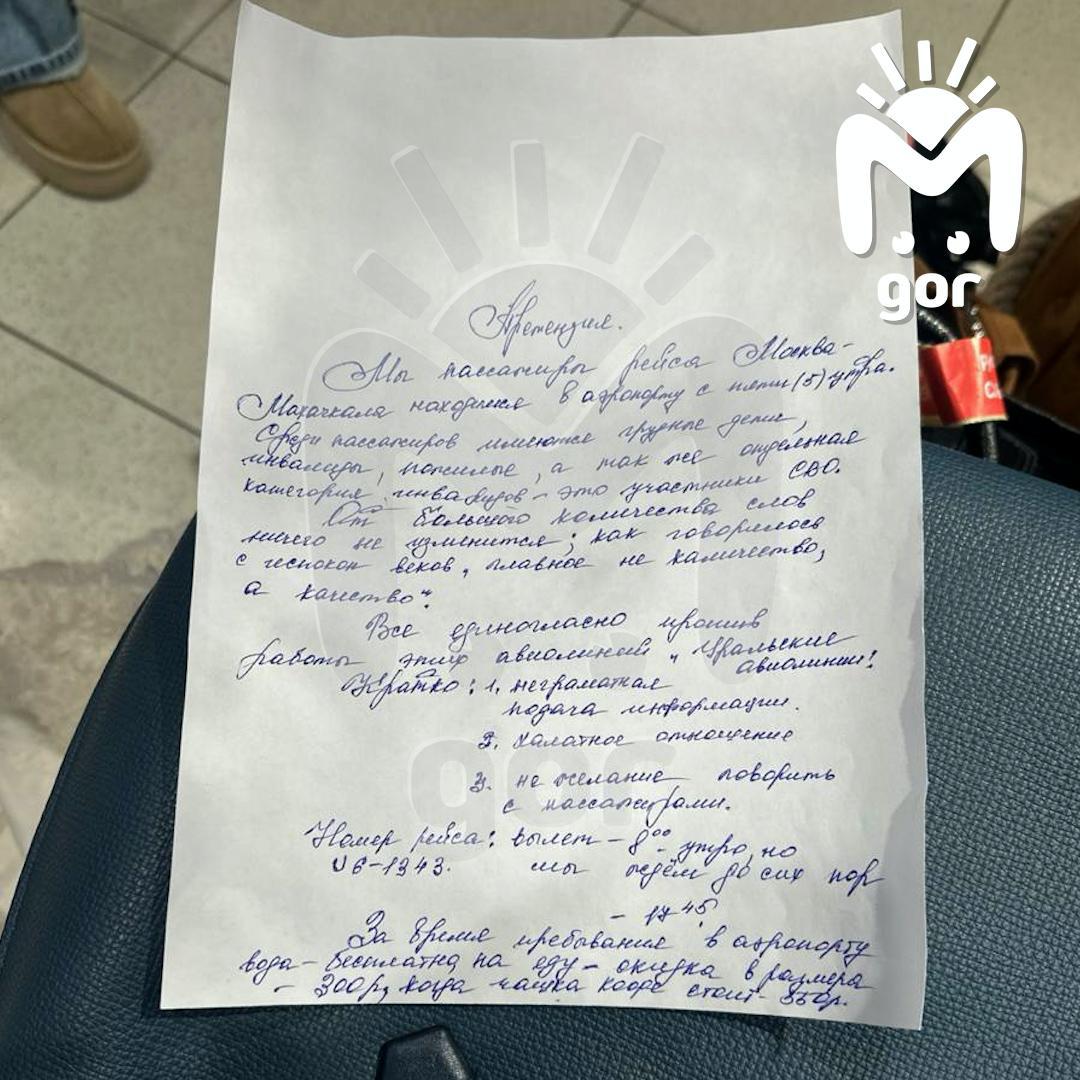 gor
Претензия.
Мы пассажиры рейса Москва-
Махачкала находимся в аэропорту с пяти (5) утра.
Среди пассажиров имеются грудные дети,
инвалиды, пожилые, а так же отдельная
категория инвалидов - это участники СВО.
От большого количества слов
ничего не изменится; как говорилось
с испокон веков, "главное не каличество,
а качество".
Все единогласно против
работы этих авиолиний "Уральские
авиолинии!
Кратко: 1. неграматная
подача информации.
2. халатное отношение
3. не желание говорить
с пассажирами.
Номер рейса: вылет - 8⁰⁰ утро, но
U6-1343. мы ждём до сих пор
- 17 45
За время пребывания в аэропорту
вода - бесплатна, на еду - скидка в размера
- 300р, когда чашка кофе стоит - 550р.